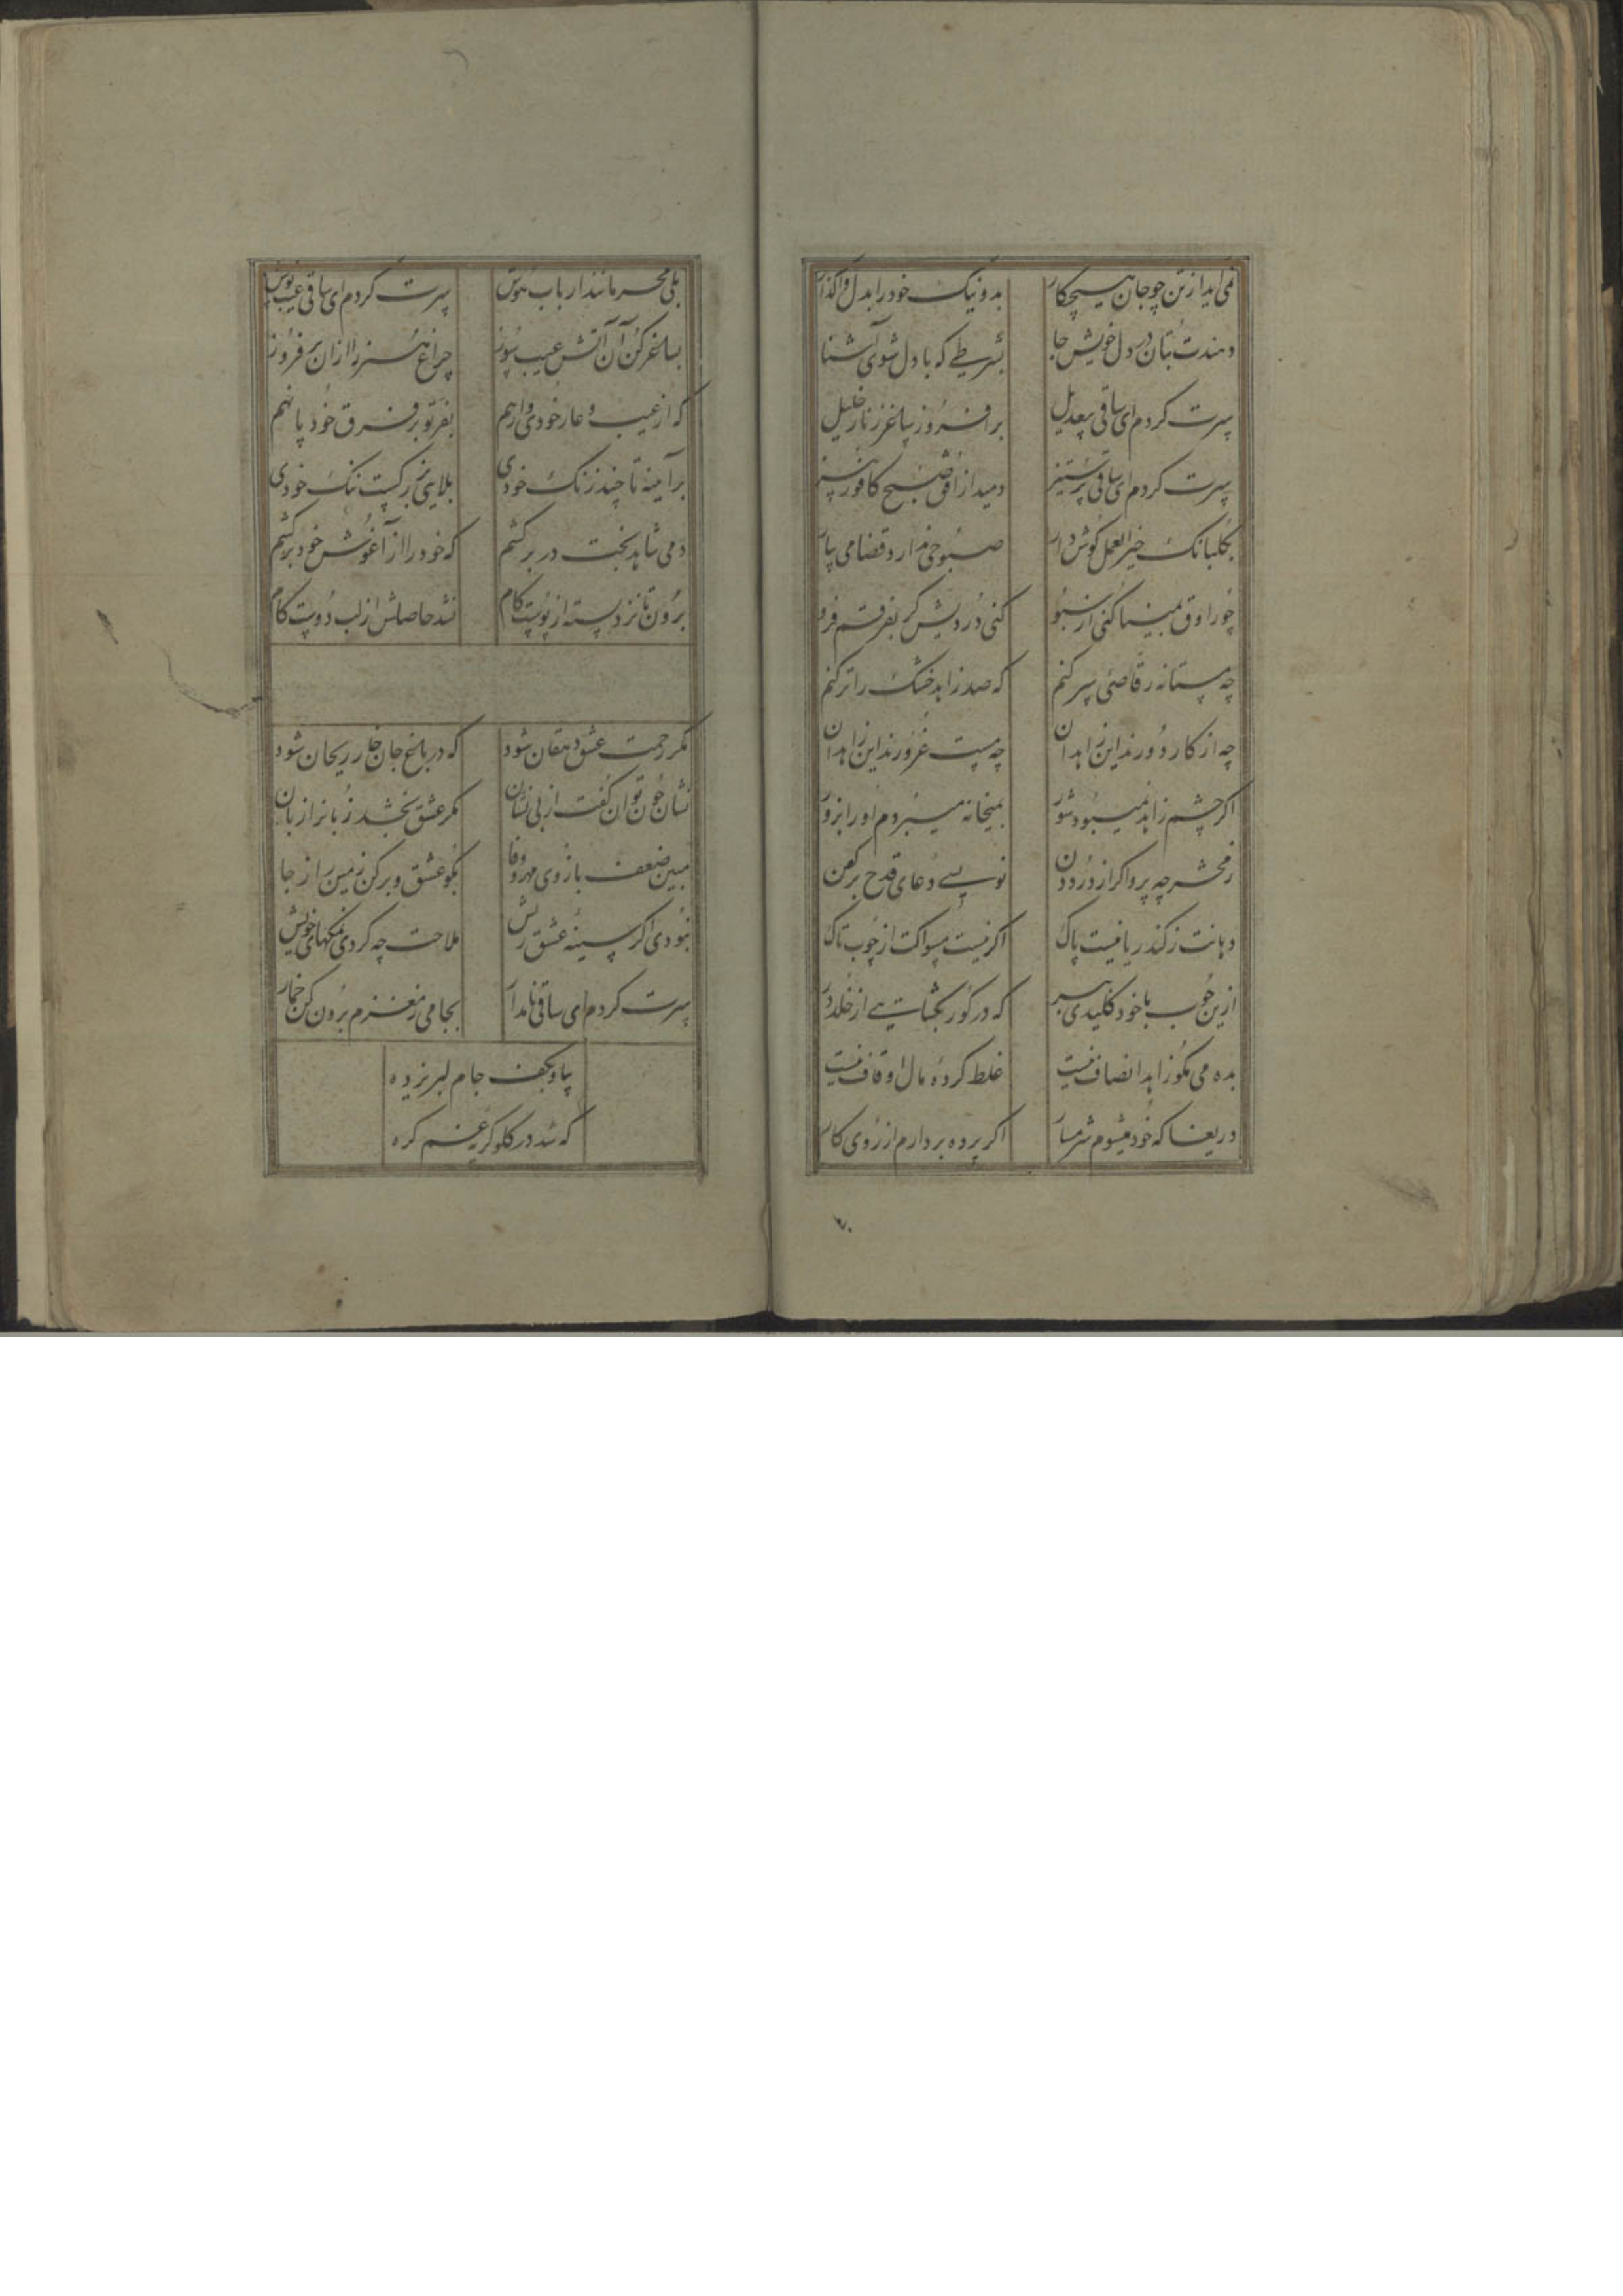 نمی آید از تن چو جان هیچکار
بد و نیک خود را بدل واگذار
دهندت بتان در دل خویش جا
بشرطی که با دل شوی آشنا
سرت کردم ای ساقی بیعدیل
برافروز ساغر ز نار خلیل
سرت کردم ای ساقی پرستیز
دمید از افق صبح کافور بیز
بگلبانک خیر العمل گوش دار
صبوحی ندارد قضا می بیار
چو راوق بمینا کنی از سبو
کنی دردیش گر بفرقم فرو
چه مستانه رقاصئی سر کنم
که صد زاهد خشک را تر کنم
چه از کار دورند این زاهدان
چه مست غرورند این زاهدان
اگر چشم زاهد نمیبود شور
بمیخانه میبردم او را بزور
ز محشر چه پروا گر از درد دن
نویسی دعای قدح بر کفن
دهانت ز گند ریا نیست پاک
اگر نیست مسواکت از چوب تاک
ازین چوب با خود کلیدی ببر
که در گور بگشایی از خلد در
بده می مگو زاهد انصاف نیست
غلط کردهٔ مال اوقاف نیست
دریغا که خود میشوم شرمسار
اگر پرده بردارم از روی کار
۷۰
بلی محرمانند ارباب هوش
سرت کردم ای ساقی عیب پوش
بساغر کن آن آتش عیب سوز
چراغ هنر را از آن برفروز
که از عیب و عار خودی وارهم
بفر تو بر فرق خود پا نهم
بر آینه تا چند زنک خودی
بلایی بتر کیست ننک خودی
دمی شاهد بخت در بر کشم
که خود را از آغوش خود برکشم
برون تا نزد پسته از پوست کام
نشد حاصلش از لب دوست کام
مگر رحمت عشق دهقان شود
که در باغ جان خار ریحان شود
نشان چون توان گفت از بی نشان
مگر عشق بخشد زبانر از بان
مبین ضعف بازوی مهر و وفا
بگو عشق و برکن زمین را ز جا
نبودی اگر سینهٔ عشق ریش
ملاحت چه کردی نمکهای خویش
سرت کردم ای ساقی نامدار
بجامی ز مغزم برون کن خمار
بیا و بکف جام لبریز ده
که شد در گلو گریه غم گره